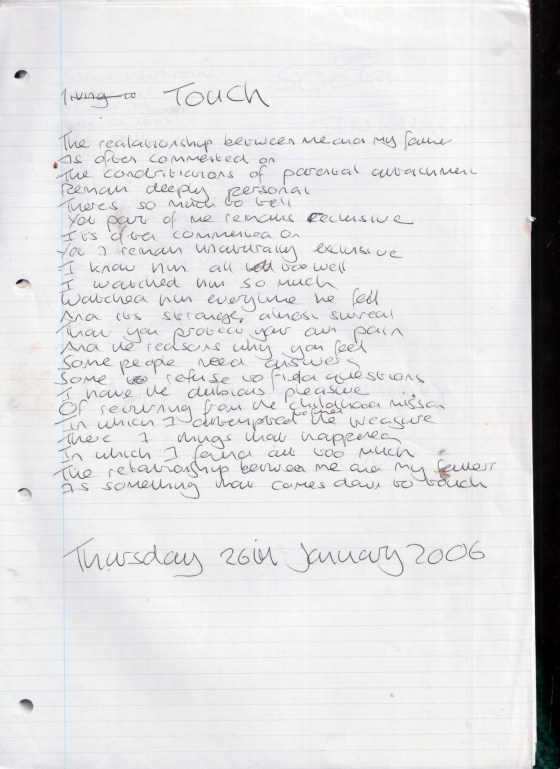 Touch
The realationship between me and my father
Is often commented on
The conditiations of parental attachment
Remain deeply personal
Theres so much to tell
Yet part of me remains reclusive
It's often commented on
Yet I remain unaturally exclusive
I know him all too well
I watched him so much
Watched him everytime he fell
And its strange, almost surreal
That you protect your own pain
And the reasons why you feel
Some people need answers
Some refuse to find questions
I have the dubious pleasure
Of returning from the childhood mission
In which I attempted to the measure
There I things that happened
In which I found out too much
The relationship between me and my father
Is something that comes down to touch
Thursday 26th January 2006